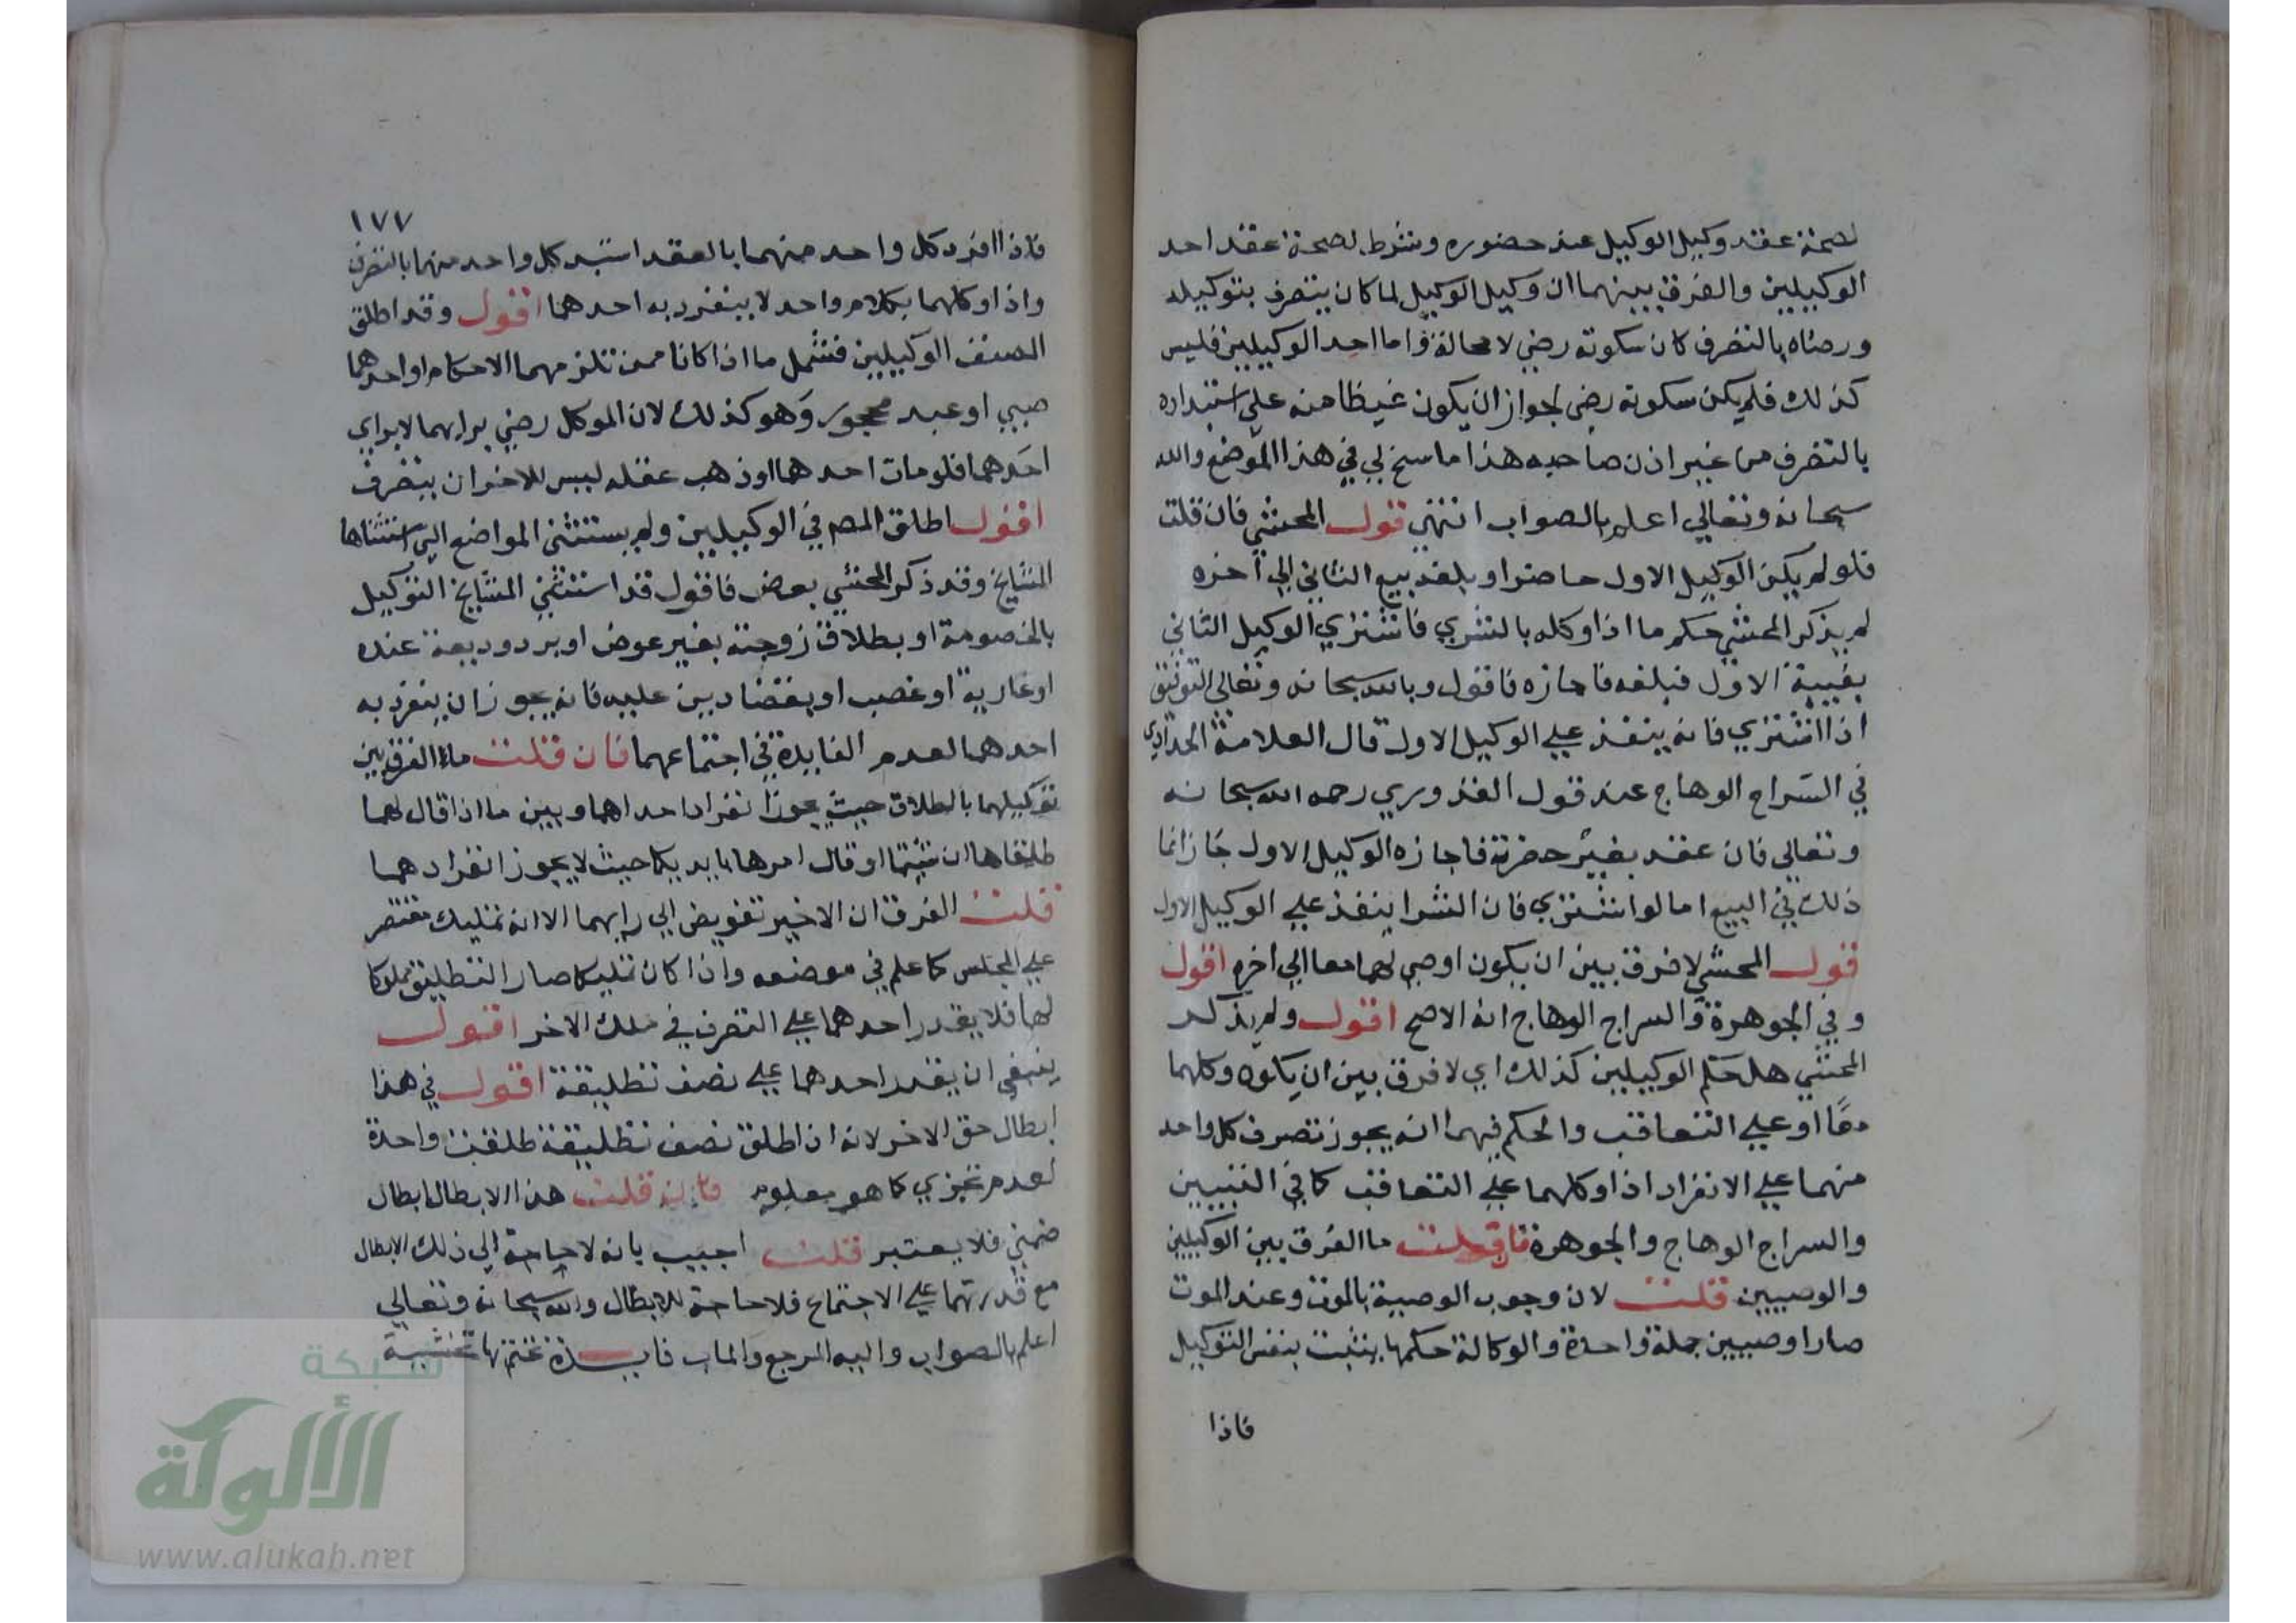 لصحة عقد وكيل الوكيل عند حضوره وشرط لصحة عقد احد
الوكيلين والفرق بينهما ان وكيل الوكيل لما كان يتصرف بتوكيله
ورضاه بالتصرف كان سكوته رضي لا محالة واما احد الوكيلين فليس
كذلك فلم يكن سكوته رضي لجواز ان يكون غيظا منه علي استبداده
بالتصرف من غير اذن صاحبه هذا ما سنح لي في هذا الموضع والله
سبحانه وتعالي اعلم بالصواب انتهي قول المحشي فان قلت
فلو لم يكن الوكيل الاول حاضرا وبلغه بيع الثاني الي آخره
لم يذكر المحشي حكم ما اذا وكله بالشري فاشتري الوكيل الثاني
بغيبة الاول فبلغه فاجازه فاقول وبالله سبحانه وتعالي التوفيق
اذا اشتري فانه ينفذ علي الوكيل الاول قال العلامة الحدادي
في السراج الوهاج عند قول القدوري رحمه الله سبحانه
وتعالي فان عقد بغير حضرته فاجازه الوكيل الاول جاز انما
ذلك في البيع اما لو اشتري فان الشرا ينفذ علي الوكيل الاول
قول المحشي لا فرق بين ان يكون اوصي لهما معا الي اخره اقول
وفي الجوهرة والسراج الوهاج انه الاصح اقول ولم يذكر
المحشي هل حكم الوكيلين كذلك اي لا فرق بين ان يكون وكلهما
معا او علي التعاقب والحكم فيهما انه يجوز تصرف كل واحد
منهما علي الانفراد اذا وكلهما علي التعاقب كما في التبيين
والسراج الوهاج والجوهرة فان قلت ما الفرق بين الوكيلين
والوصيين قلت لان وجوب الوصية بالموت وعند الموت
صارا وصيين جملة واحدة والوكالة حكمها يثبت بنفس التوكيل
فاذا
١٧٧
فاذا افرد كل واحد منهما بالعقد استبد كل واحد منهما بالتصرف
واذا وكلهما بكلام واحد لا ينفرد به احدهما اقول وقد اطلق
المصنف الوكيلين فشمل ما اذا كانا ممن تلزمهما الاحكام او احدهما
صبي او عبد محجور وهو كذلك لان الموكل رضي برايهما لا براي
احدهما فلو مات احدهما او ذهب عقله ليس للاخر ان يتصرف
اقول اطلق المصم في الوكيلين ولم يستثني المواضع التي استثناها
المشايخ وقد ذكر المحشي بعض فاقول قد استثني المشايخ التوكيل
بالخصومة او بطلاق زوجته بغير عوض او برد وديعة عنده
او عارية او غصب او بقضا دين عليه فانه يجوز ان ينفرد به
احدهما لعدم الفايدة في اجتماعهما فان قلت ما الفرق بين
توكيلهما بالطلاق حيث يجوز انفراد احداهما وبين ما اذا قال لهما
طلقاها ان شئتما او قال امرها بايديكما حيث لا يجوز انفرادهما
قلت الفرق ان الاخير تفويض الي رايهما الا انه تمليك مقتصر
علي المجلس كما علم في موضعه واذا كان تمليكا صار التطليق مملوكا
لهما فلا يقدر احدهما علي التصرف في ملك الاخر اقول
ينبغي ان يقدر احدهما علي نصف تطليقة اقول في هذا
ابطال حق الاخر لانه ان اطلق نصف تطليقة طلقت واحدة
لعدم تجزي كما هو معلوم فان قلت هذا الابطال ابطال
ضمني فلا يعتبر قلت اجيب بانه لا حاجة الي ذلك الابطال
مع قدرتهما علي الاجتماع فلا حاجة للابطال والله سبحانه وتعالي
اعلم بالصواب واليه المرجع والماب فايدة نختم بها
شبكة
الألوكة
www.alukah.net